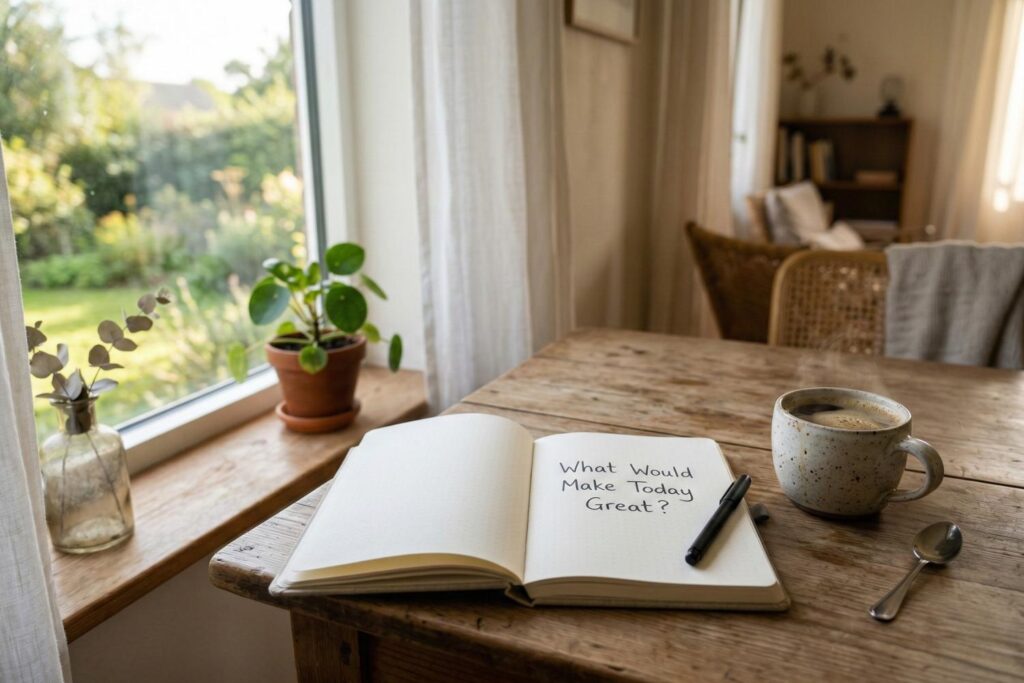 What Would
Make Today
Great?